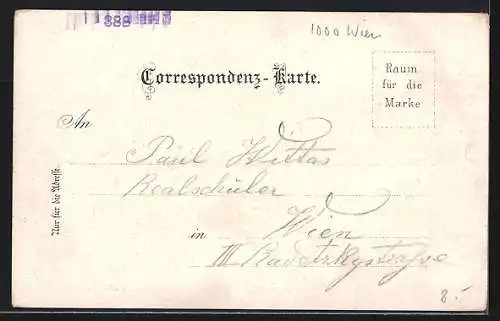 388
1000 Wien
Correspondenz-Karte.
Raum
für die
Marke
An
Paul Wittas
Realschüler
in Wien
III Radetzkystraße
Nur für die Adresse.
8.-